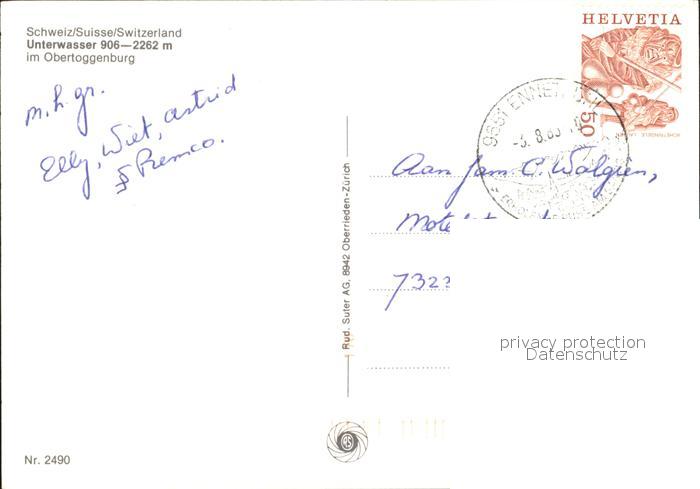 Schweiz/Suisse/Switzerland
Unterwasser 906—2262 m
im Obertoggenburg
m.h.gr.
Elly, Wiet, Astrid
& Remco.
HELVETIA
50
9651 ENNET
-3. 8.83
Aan fam. C. Walgien,
7323
privacy protection
Datenschutz
Rud. Suter AG. 8942 Oberrieden-Zürich
Nr. 2490